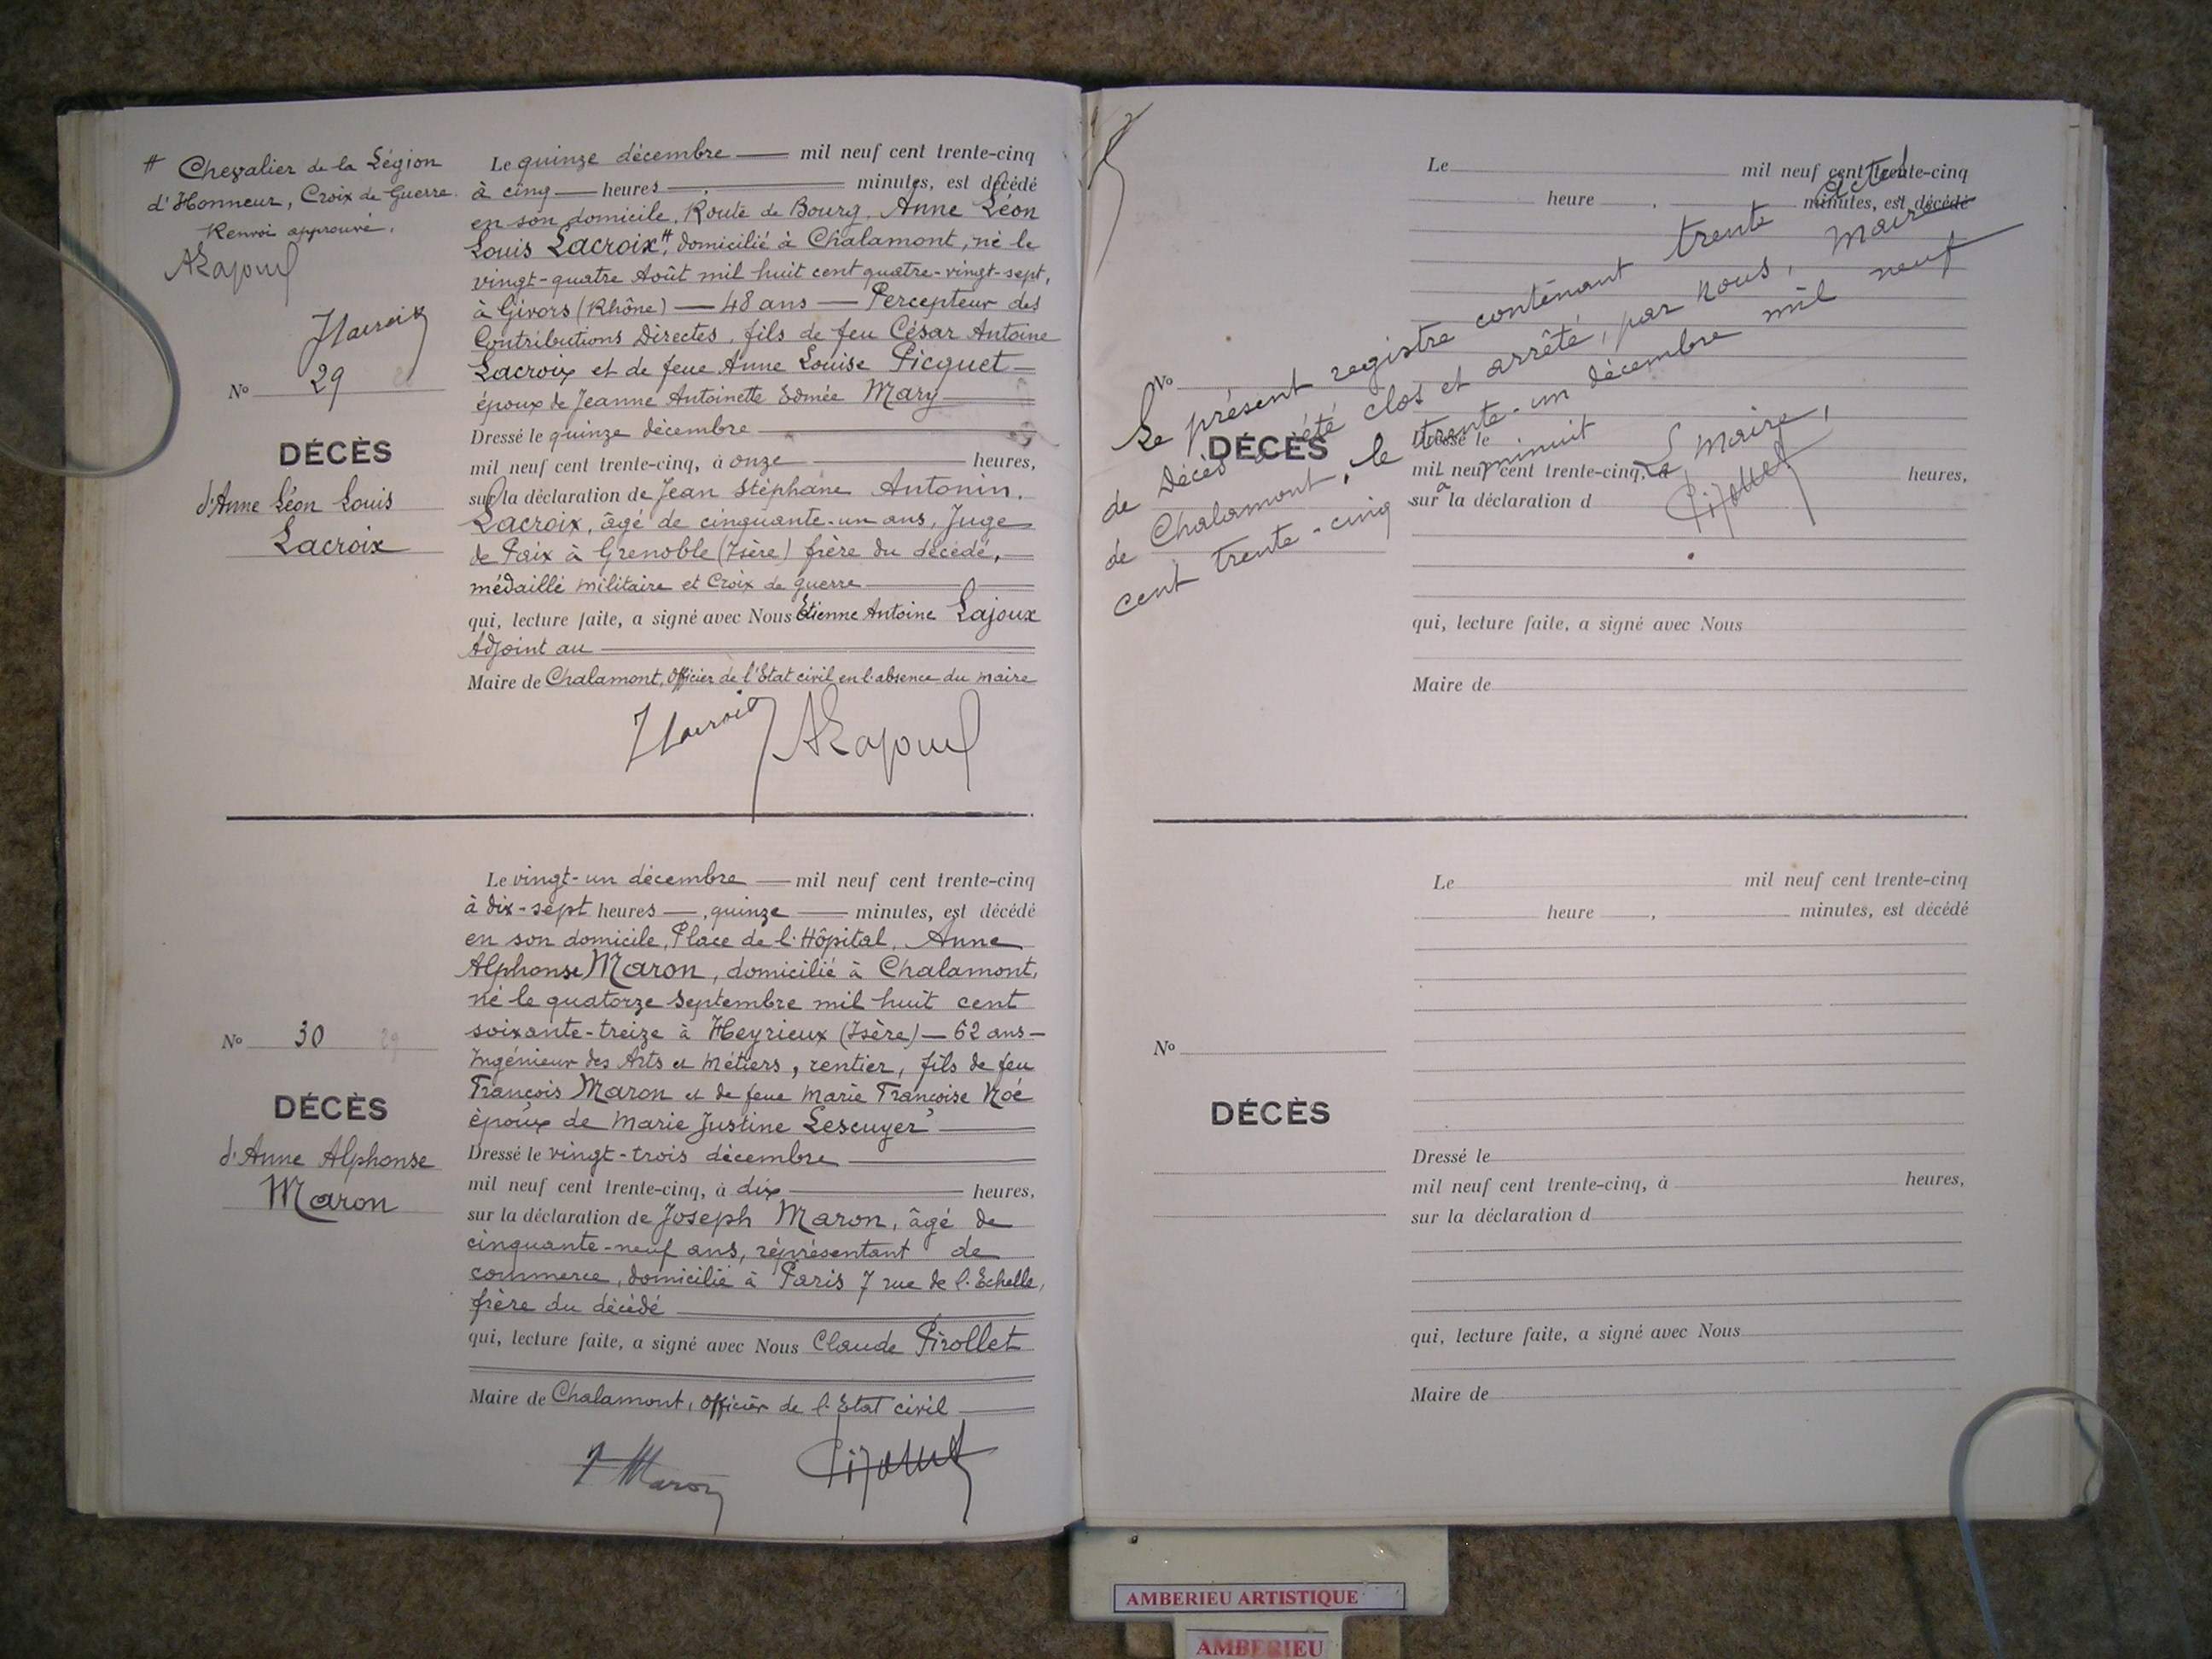 # Chevalier de la Légion
d'Honneur, Croix de Guerre.
Renvoi approuvé.
ALajoux
JLacroix
No 29
DÉCÈS
d'Anne Léon Louis
Lacroix
Le quinze décembre mil neuf cent trente-cinq
à cinq heures , minutes, est décédé
en son domicile, Route de Bourg, Anne Léon
Louis Lacroix #, domicilié à Chalamont, né le
vingt-quatre Août mil huit cent quatre-vingt-sept,
à Givors (Rhône) — 48 ans — Percepteur des
Contributions Directes, fils de feu César Antoine
Lacroix et de feue Anne Louise Picquet
époux de Jeanne Antoinette Edmée Mary
Dressé le quinze décembre
mil neuf cent trente-cinq, à onze heures,
sur la déclaration de Jean Stéphane Antonin
Lacroix, âgé de cinquante-un ans, Juge
de Paix à Grenoble (Isère) frère du décédé,
médaillé militaire et Croix de guerre
qui, lecture faite, a signé avec Nous Etienne Antoine Lajoux
Adjoint au
Maire de Chalamont, Officier de l'Etat civil en l'absence du maire
JLacroix ALajoux
No 30 29
DÉCÈS
d'Anne Alphonse
Maron
Le vingt-un décembre — mil neuf cent trente-cinq
à dix-sept heures — , quinze — minutes, est décédé
en son domicile, Place de l'Hôpital, Anne
Alphonse Maron, domicilié à Chalamont,
né le quatorze Septembre mil huit cent
soixante-treize à Heyrieux (Isère) — 62 ans —
Ingénieur des Arts et Métiers, rentier, fils de feu
François Maron et de feue Marie Françoise Noé
époux de Marie Justine Lescuyer
Dressé le vingt-trois décembre
mil neuf cent trente-cinq, à dix heures,
sur la déclaration de Joseph Maron, âgé de
cinquante-neuf ans, réprésentant de
commerce, domicilié à Paris 7 rue de l'Echelle,
frère du décédé
qui, lecture faite, a signé avec Nous Claude Pirollet
Maire de Chalamont, Officier de l'Etat civil
J Maron Pirollet
Le présent registre contenant trente actes
de Décès a été clos et arrêté, par nous, Maire
de Chalamont, le trente-un décembre mil neuf
cent trente-cinq à minuit
Le Maire,
Pirollet
Le mil neuf cent trente-cinq
heure , minutes, est décédé
No
DÉCÈS
Dressé le
mil neuf cent trente-cinq, à heures,
sur la déclaration d
qui, lecture faite, a signé avec Nous
Maire de
Le mil neuf cent trente-cinq
heure , minutes, est décédé
No
DÉCÈS
Dressé le
mil neuf cent trente-cinq, à heures,
sur la déclaration d
qui, lecture faite, a signé avec Nous
Maire de
AMBERIEU ARTISTIQUE
AMBERIEU